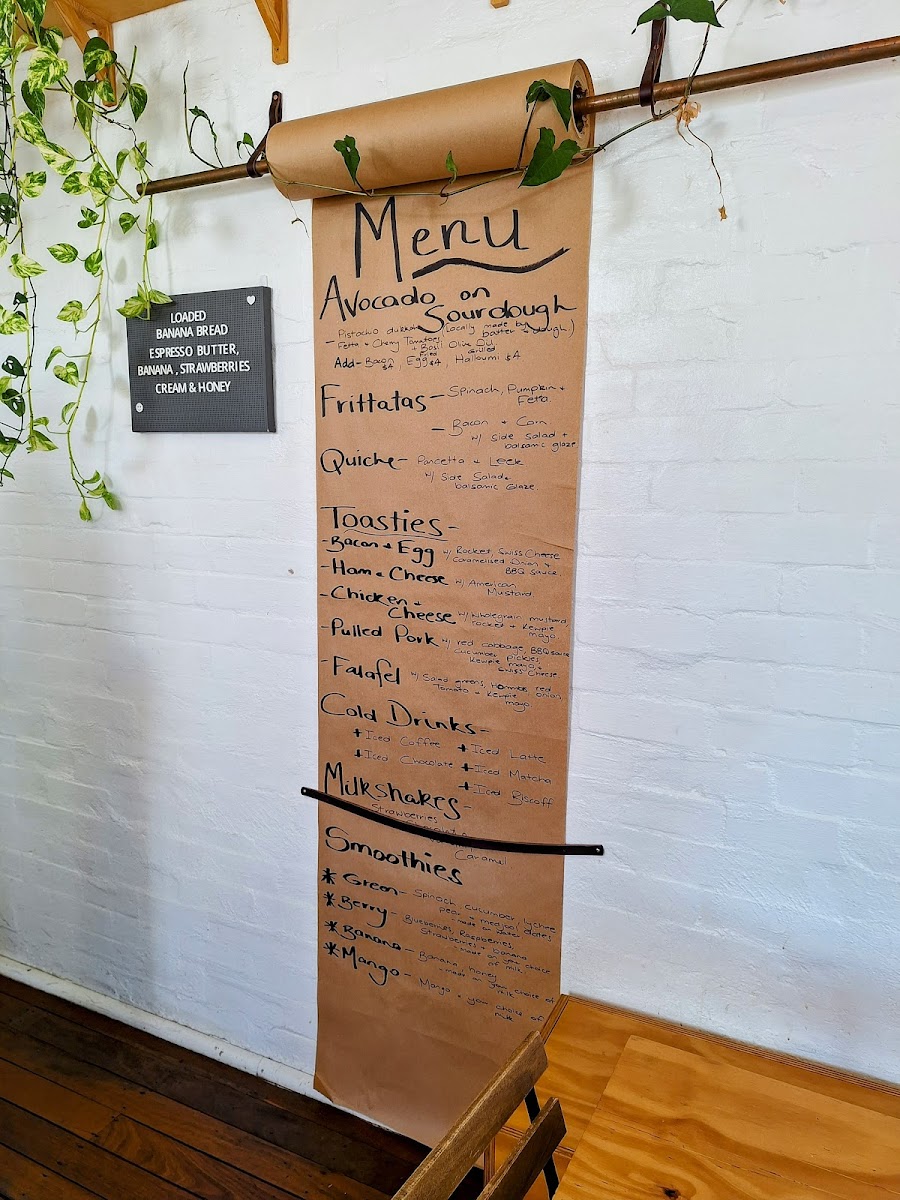 LOADED
BANANA BREAD
ESPRESSO BUTTER,
BANANA, STRAWBERRIES
CREAM & HONEY
Menu
Avocado on
Sourdough
- Pistachio dukkah (locally made by
batter + dough.)
Fetta + Cherry Tomatoes
+ Basil Olive Oil
Fried Grilled
Add - Bacon, Egg $4, Halloumi $4
$4
Frittatas - Spinach, Pumpkin +
Fetta.
- Bacon + Corn
w/ side salad +
balsamic glaze
Quiche - Pancetta + Leek
w/ Side Salad +
balsamic Glaze.
Toasties -
- Bacon + Egg w/ Rocket, Swiss Cheese
Caramelised Onion +
BBQ sauce.
- Ham + Cheese w/ American
Mustard.
- Chicken +
Cheese w/ wholegrain mustard,
rocket + Kewpie
mayo.
- Pulled Pork w/ red cabbage, BBQ sauce
cucumber pickles,
Kewpie mayo +
Swiss Cheese
- Falafel w/ Salad greens, Hommos, red
Tomato + Kewpie onion,
mayo
Cold Drinks -
+ Iced Coffee + Iced Latte
+ Iced Chocolate + Iced Matcha
+ Iced Biscoff
Milkshakes -
Strawberries
Caramel
Smoothies
* Green - Spinach, cucumber, lychee
pear + medjool dates
- made on water
* Berry - Blueberries, Raspberries,
Strawberries + banana
- made on your choice
of milk.
* Banana - Banana, honey
- made on your choice of
milk
* Mango - Mango + your choice of
milk